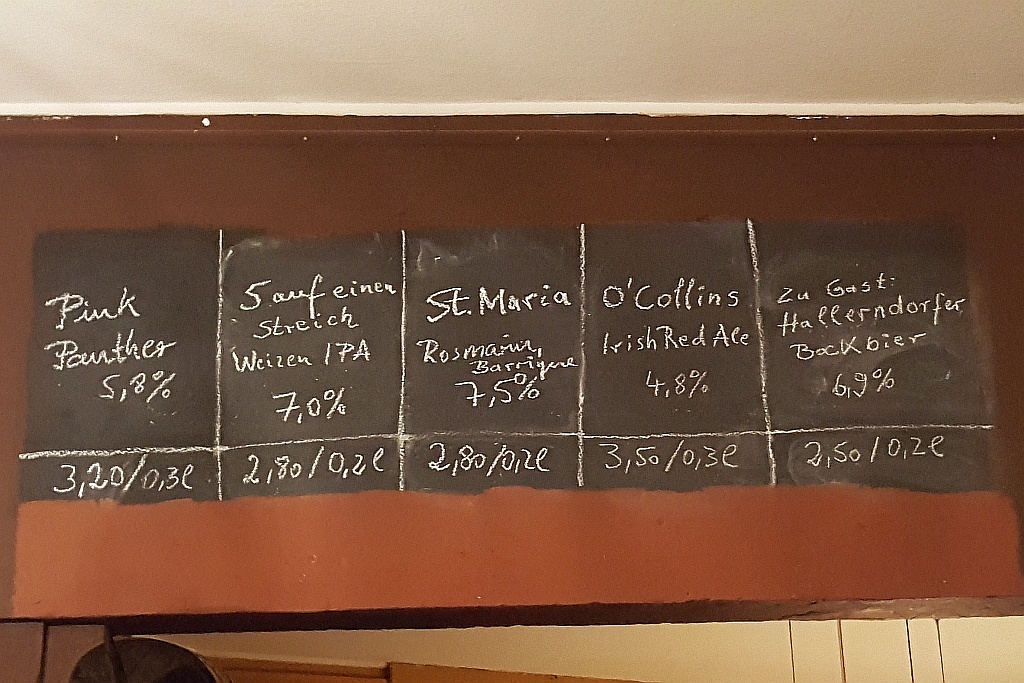 Pink
Panther
5,8%
3,20/0,3l
5 auf einen
Streich
Weizen IPA
7,0%
2,80/0,2l
St. Maria
Rosmarin,
Barrique
7,5%
2,80/0,2l
O'Collins
Irish Red Ale
4,8%
3,50/0,3l
Zu Gast:
Hallerndorfer
Bockbier
6,9%
2,50/0,2l